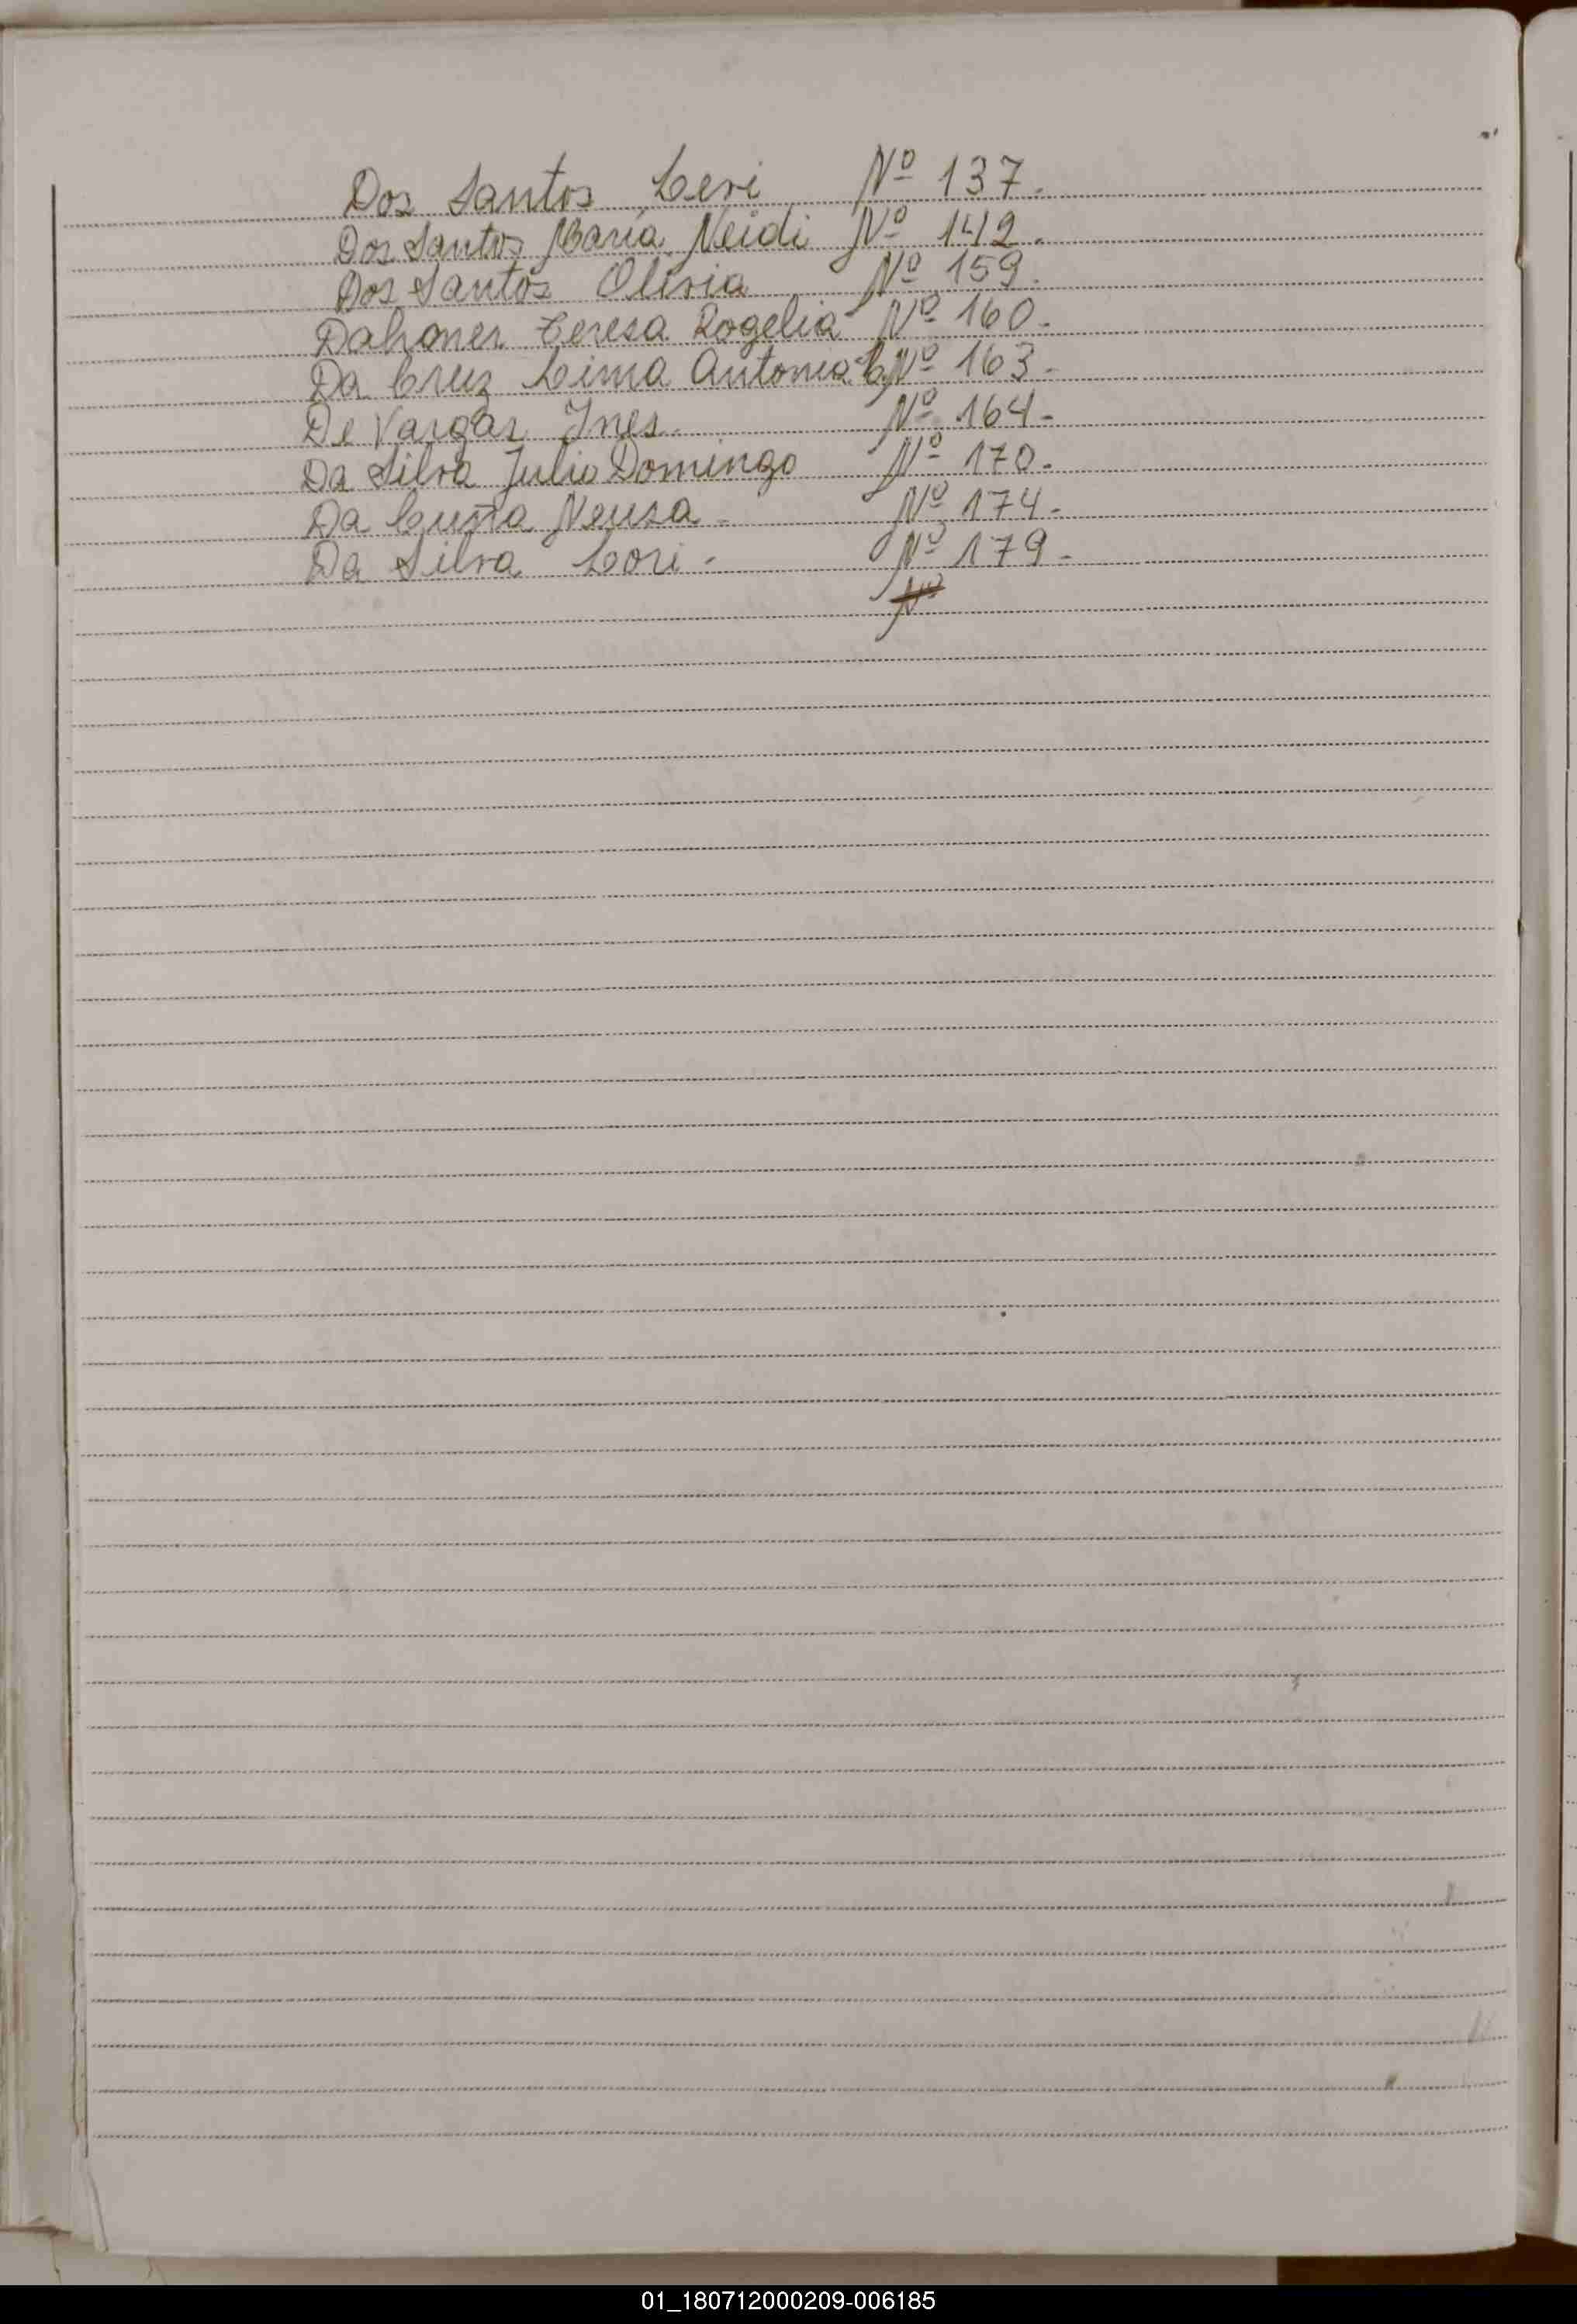 Dos Santos Leri Nº 137.
Dos Santos Maria Neidi Nº 142.
Dos Santos Oliria Nº 159.
Dahoner Teresa Rogelia Nº 160.
Da Cruz Lima Antonia C. Nº 163.
De Vargas Ines. Nº 164.
Da Silva Julio Domingo Nº 170.
Da Cuña Neusa. Nº 174.
Da Silva Lori. Nº 179.
Nº
01_180712000209-006185